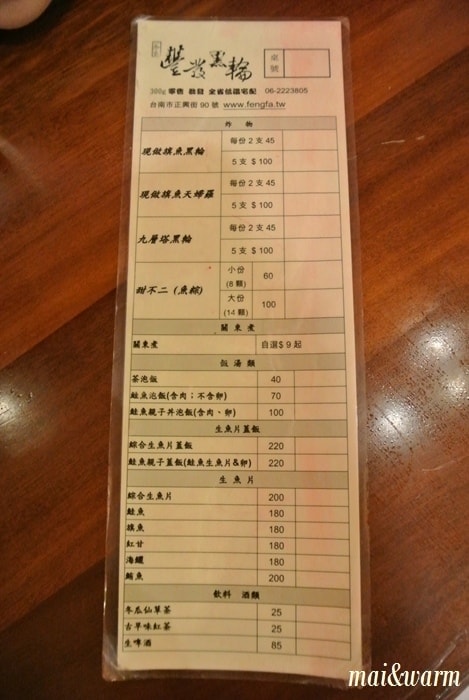 豐發黑輪
桌號
300g 零售 批發 全省低溫宅配 06-2223805
台南市正興街 90 號 www.fengfa.tw
炸 物
現做旗魚黑輪 每份 2 支 45
5 支 $ 100
現做旗魚天婦羅 每份 2 支 45
5 支 $ 100
九層塔黑輪 每份 2 支 45
5 支 $ 100
甜不二 (魚粽) 小份 (8 顆) 60
大份 (14 顆) 100
關 東 煮
關東煮 自選$ 9 起
飯 湯 類
茶泡飯 40
鮭魚泡飯(含肉；不含卵) 70
鮭魚親子丼泡飯(含肉、卵) 100
生魚片蓋飯
綜合生魚片蓋飯 220
鮭魚親子蓋飯(鮭魚生魚片&卵) 220
生 魚 片
綜合生魚片 200
鮭魚 180
旗魚 180
紅甘 180
海鱺 180
鮪魚 200
飲料 酒類
冬瓜仙草茶 25
古早味紅茶 25
生啤酒 85
mai&warm